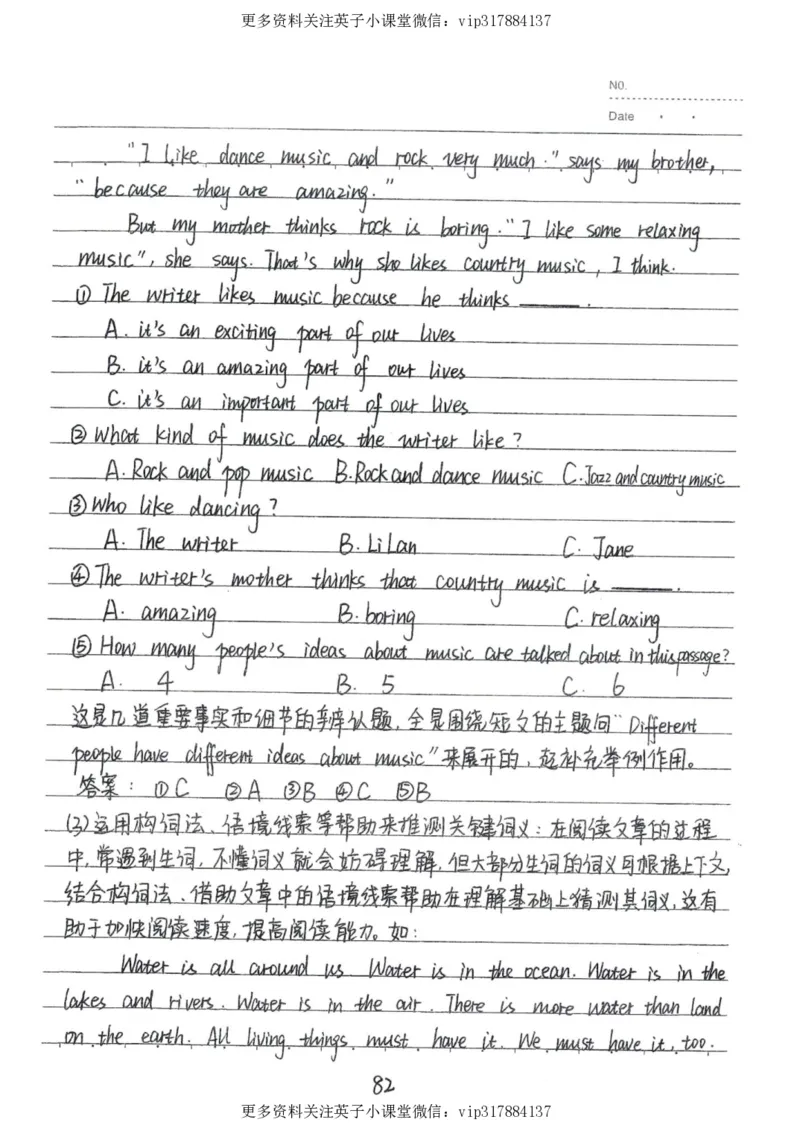 更多资料关注英子小课堂微信：vip317884137
NO.
Date
"I like dance music and rock very much." says my brother,
"because they are amazing."
But my mother thinks rock is boring. "I like some relaxing
music", she says. That's why she likes country music, I think.
① The writer likes music because he thinks ______.
A. it's an exciting part of our lives
B. it's an amazing part of our lives
C. it's an important part of our lives
② What kind of music does the writer like?
A. Rock and pop music B. Rock and dance music C. Jazz and country music
③ Who like dancing?
A. The writer B. Li Lan C. Jane
④ The writer's mother thinks that country music is ______.
A. amazing B. boring C. relaxing
⑤ How many people's ideas about music are talked about in this passage?
A. 4 B. 5 C. 6
这是几道重要事实和细节的辨认题,全是围绕短文的主题句"Different
people have different ideas about music"来展开的,起补充举例作用。
答案: ①C ②A ③B ④C ⑤B
(3)运用构词法、语境线索等帮助来推测关键词义:在阅读文章的过程
中,常遇到生词,不懂词义就会妨碍理解,但大部分生词的词义可根据上下文,
结合构词法、借助文章中的语境线索帮助在理解基础上猜测其词义,这有
助于加快阅读速度,提高阅读能力。如:
Water is all around us. Water is in the ocean. Water is in the
lakes and rivers. Water is in the air. There is more water than land
on the earth. All living things must have it. We must have it, too.
82
更多资料关注英子小课堂微信：vip317884137